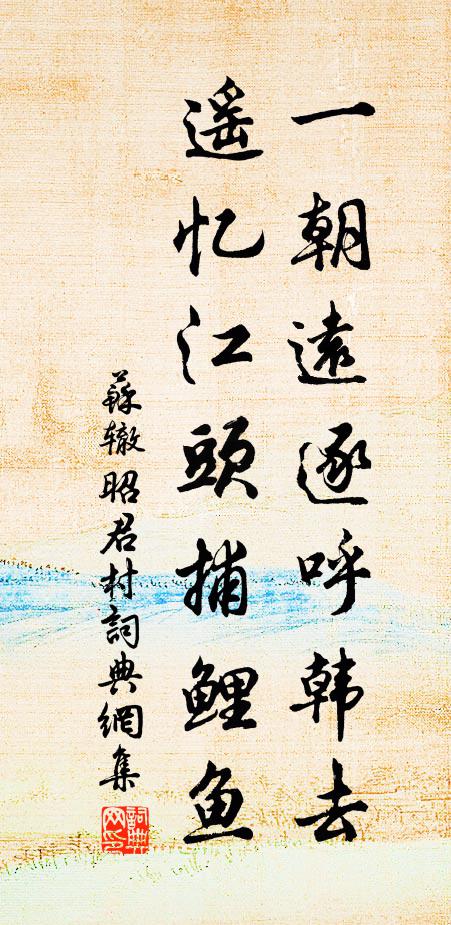 一朝遠逐呼韩去
遥忆江頭捕鲤鱼
蘇辙昭君村詞典網集
詞典网印